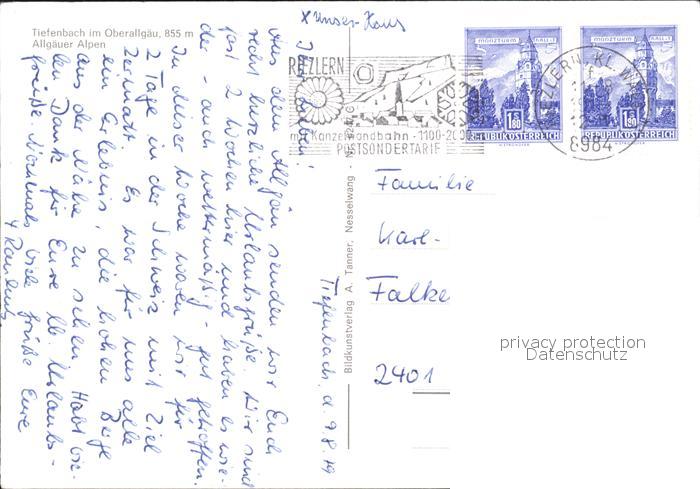 Tiefenbach im Oberallgäu, 855 m
Allgäuer Alpen
x Unser Haus
Tiefenbach, d. 9.8.79
Ihr Lieben!
Aus dem Allgäu senden wir Euch
recht herzliche Urlaubsgrüße. Wir sind
fast 2 Wochen hier und haben es wie-
der - auch wettermäßig - gut getroffen.
In dieser Woche waren wir für
2 Tage in der Schweiz mit Ziel
Zermatt. Es war für uns alle
ein Erlebnis, die hohen Berge
aus der Nähe zu sehen. Habt vie-
len Dank für Eure lb. Urlaubs-
grüße. Nochmals viele Grüße Eure
Bildkunstverlag A. Tanner, Nesselwang - Nr.
RIEZLERN
mit Kanzelwandbahn · 1100-2000
POSTSONDERTARIF
MÜNZTURM HALL i. T.
S 1.80
REPUBLIK ÖSTERREICH
MÜNZTURM HALL i. T.
S 1.80
REPUBLIK ÖSTERREICH
RIEZLERN, KL. W
8984
Familie
Karl-
Falke
2401
privacy protection
Datenschutz